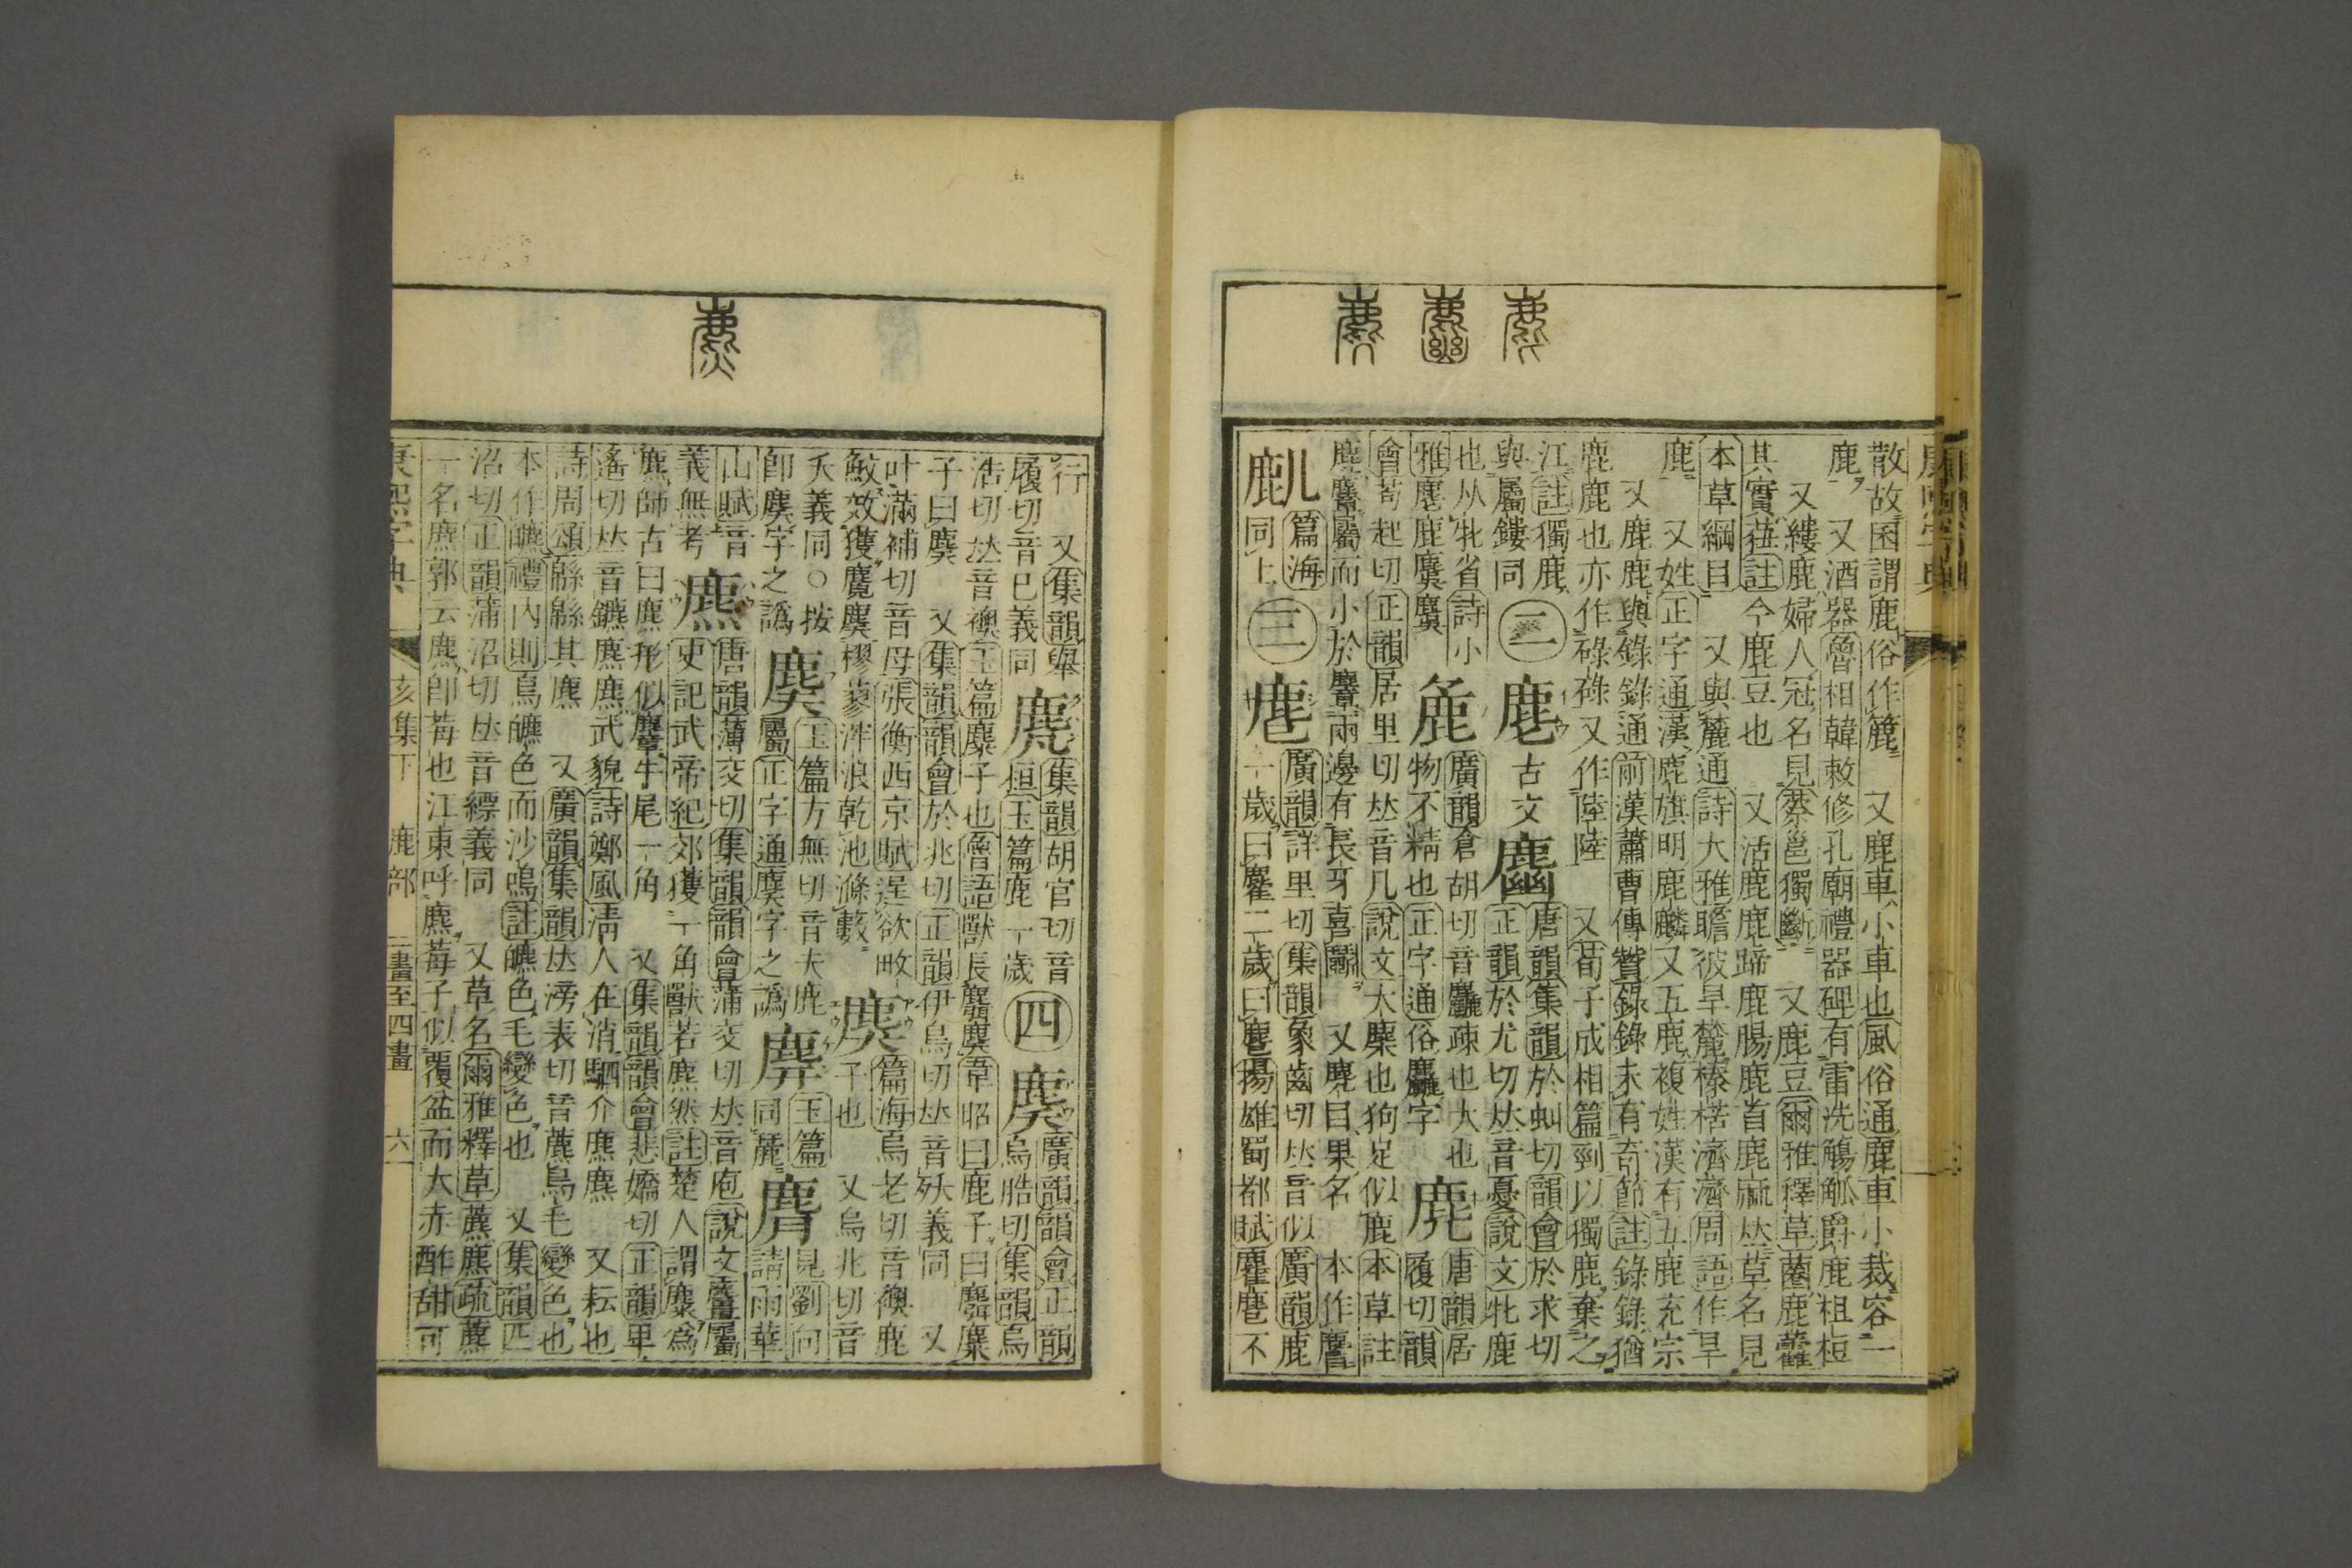 散故困謂鹿俗作簏 又鹿車小車也風俗通鹿車小裁容一
鹿 又酒器魯相韓敕修孔廟禮器碑有雷洗觴觚爵鹿柤梪
又縷鹿婦人冠名見蔡邕獨斷 又鹿豆爾雅釋草蔨鹿藿
其實莥註今鹿豆也 又活鹿鹿蹄鹿腸鹿首鹿麻𠀤草名見
本草綱目 又與麓通詩大雅瞻彼旱麓榛楛濟濟周語作旱
鹿 又姓正字通漢鹿旗明鹿麟又五鹿複姓漢有五鹿充宗
又鹿鹿與錄錄通前漢蕭曹傳贊錄錄未有奇節註錄錄猶
鹿鹿也亦作碌碌又作陸陸 又荀子成相篇剄以獨鹿棄之
江註獨鹿
與屬鏤同
二
麀
古文
唐韻集韻於虯切韻會於求切
正韻於尤切𠀤音憂說文牝鹿
也从牝省詩小
雅麀鹿麌麌
麁
廣韻倉胡切音麤疎也大也
物不精也正字通俗麤字
麂
唐韻居
履切韻
會苟起切正韻居里切𠀤音几說文大麋也狗足似鹿本草註
麂麞屬而小於麞兩邊有長牙喜鬭 又麂目果名 本作
篇海
同上
三
廣韻詳里切集韻象齒切𠀤音似廣韻鹿
一歲曰 二歲曰 揚雄蜀都賦 不
行 又集韻舉
履切音已義同
集韻胡官切音
桓玉篇鹿一歲
四
䴠
廣韻韻會正韻
烏晧切集韻烏
浩切𠀤音襖玉篇麋子也魯語獸長麑䴠韋昭曰鹿子曰麑麋
子曰䴠 又集韻韻會於兆切正韻伊鳥切𠀤音殀義同 又
叶滿補切音母張衡西京賦逞欲畋
𩼈效獲麑䴠摎蓼浶浪乾池滌藪
篇海烏老切音襖鹿
子也 又烏兆切音
夭義同○按
卽䴠字之譌
玉篇方無切音夫鹿
屬正字通䴠字之譌
玉篇
同麤
見劉向
請雨華
山賦音
義無考
麃
唐韻薄交切集韻韻會蒲交切𠀤音庖說文麞屬
史記武帝紀郊獲一角獸若麃然註楚人謂麋爲
麃師古曰麃形似麞牛尾一角 又集韻韻會悲嬌切正韻𤰞
遙切𠀤音鑣麃麃武貌詩鄭風淸人在消駟介麃麃 又耘也
詩周頌緜緜其麃 又廣韻集韻𠀤滂表切音藨鳥毛變色也
本作皫禮內則鳥皫色而沙鳴註皫色毛變色也 又集韻匹
沼切正韻蒲沼切𠀤音縹義同 又草名爾雅釋草藨麃疏藨
一名麃郭云麃卽莓也江東呼麃莓子似覆盆而大赤酢甜可
康熙字典 亥集下 鹿部 二畫至四畫 六